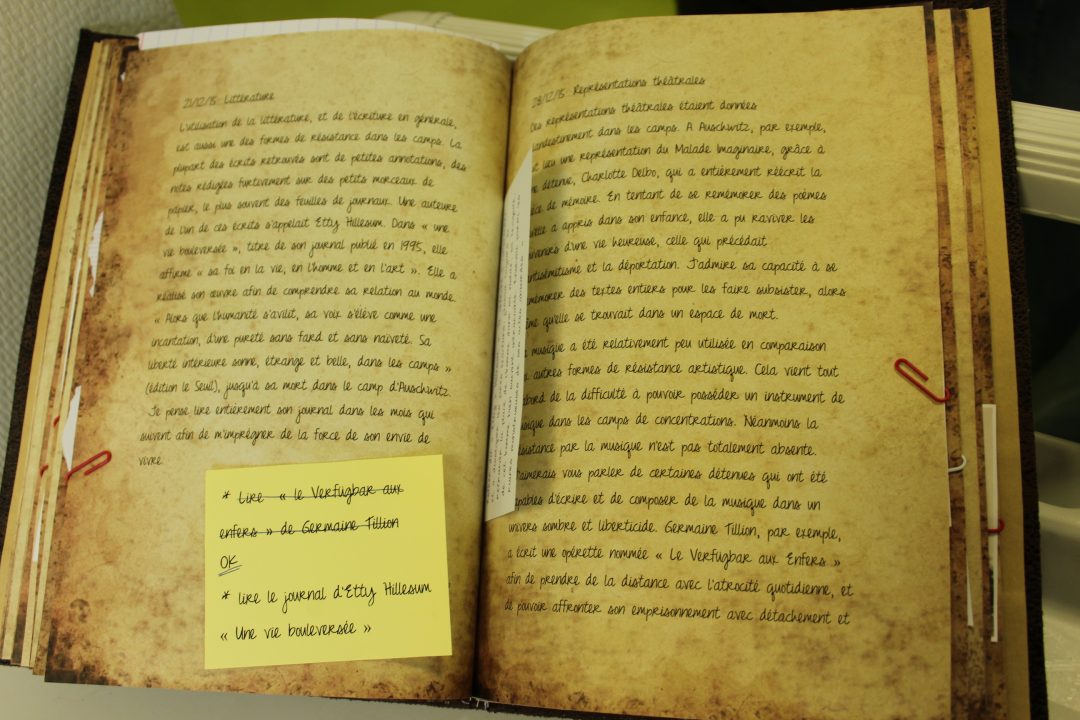 21/12/15 : Littérature
L'utilisation de la littérature, et de l'écriture en générale,
est aussi une des formes de résistance dans les camps. La
plupart des écrits retrouvés sont de petites annotations, des
notes rédigées furtivement sur des petits morceaux de
papier, le plus souvent des feuilles de journaux. Une auteure
de l'un de ces écrits s'appelait Etty Hillesum. Dans « une
vie bouleversée », titre de son journal publié en 1995, elle
affirme « sa foi en la vie, en l'homme et en l'art ». Elle a
réalisé son œuvre afin de comprendre sa relation au monde.
« Alors que l'humanité s'avilit, sa voix s'élève comme une
incantation, d'une pureté sans fard et sans naïveté. Sa
liberté intérieure sonne, étrange et belle, dans les camps »
(édition le Seuil), jusqu'à sa mort dans le camp d'Auschwitz.
Je pense lire entièrement son journal dans les mois qui
suivent afin de m'imprégner de la force de son envie de
vivre.
* Lire « le Verfügbar aux
enfers » de Germaine Tillion
OK
* lire le journal d'Etty Hillesum
« Une vie bouleversée »
28/12/15 : Représentations théâtrales
Des représentations théâtrales étaient données
landestinement dans les camps. A Auschwitz, par exemple,
lieu une représentation du Malade Imaginaire, grâce à
ne détenue, Charlotte Delbo, qui a entièrement réécrit la
èce de mémoire. En tentant de se remémorer des poèmes
elle a appris dans son enfance, elle a pu raviver les
d'une vie heureuse, celle qui précédait
ntisémitisme et la déportation. J'admire sa capacité à se
émorer des textes entiers pour les faire subsister, alors
ême qu'elle se trouvait dans un espace de mort.
a musique a été relativement peu utilisée en comparaison
autres formes de résistance artistique. Cela vient tout
abord de la difficulté à pouvoir posséder un instrument de
usique dans les camps de concentrations. Néanmoins la
sistance par la musique n'est pas totalement absente.
aimerais vous parler de certaines détenues qui ont été
pables d'écrire et de composer de la musique dans un
univers sombre et liberticide. Germaine Tillion, par exemple,
a écrit une opérette nommée « Le Verfügbar aux Enfers »
afin de prendre de la distance avec l'atrocité quotidienne, et
de pouvoir affronter son emprisonnement avec détachement et